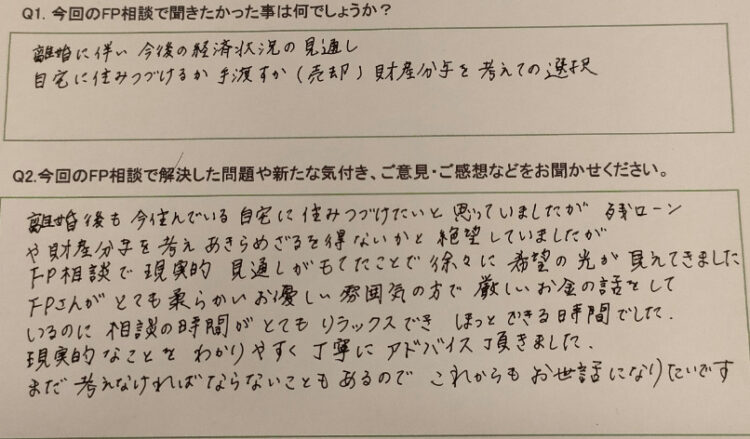 Q1. 今回のFP相談で聞きたかった事は何でしょうか？
離婚に伴い 今後の経済状況の見通し
自宅に住みつづけるか 手渡すか（売却）財産分与を考えての選択
Q2.今回のFP相談で解決した問題や新たな気付き、ご意見・ご感想などをお聞かせください。
離婚後も 今住んでいる 自宅に住みつづけたいと 思っていましたが 残ローン
や財産分与を考え あきらめざるを得ないかと 絶望していましたが
FP相談で 現実的 見通しがもてたことで 徐々に 希望の光が見えてきました
FPさんが とても柔らかい お優しい 雰囲気の方で 厳しい お金の話をして
いるのに 相談の時間が とても リラックスでき ほっと できる時間でした.
現実的なことを わかりやすく 丁寧に アドバイス頂きました.
まだ 考えなければならないこともあるので これからも お世話になりたいです